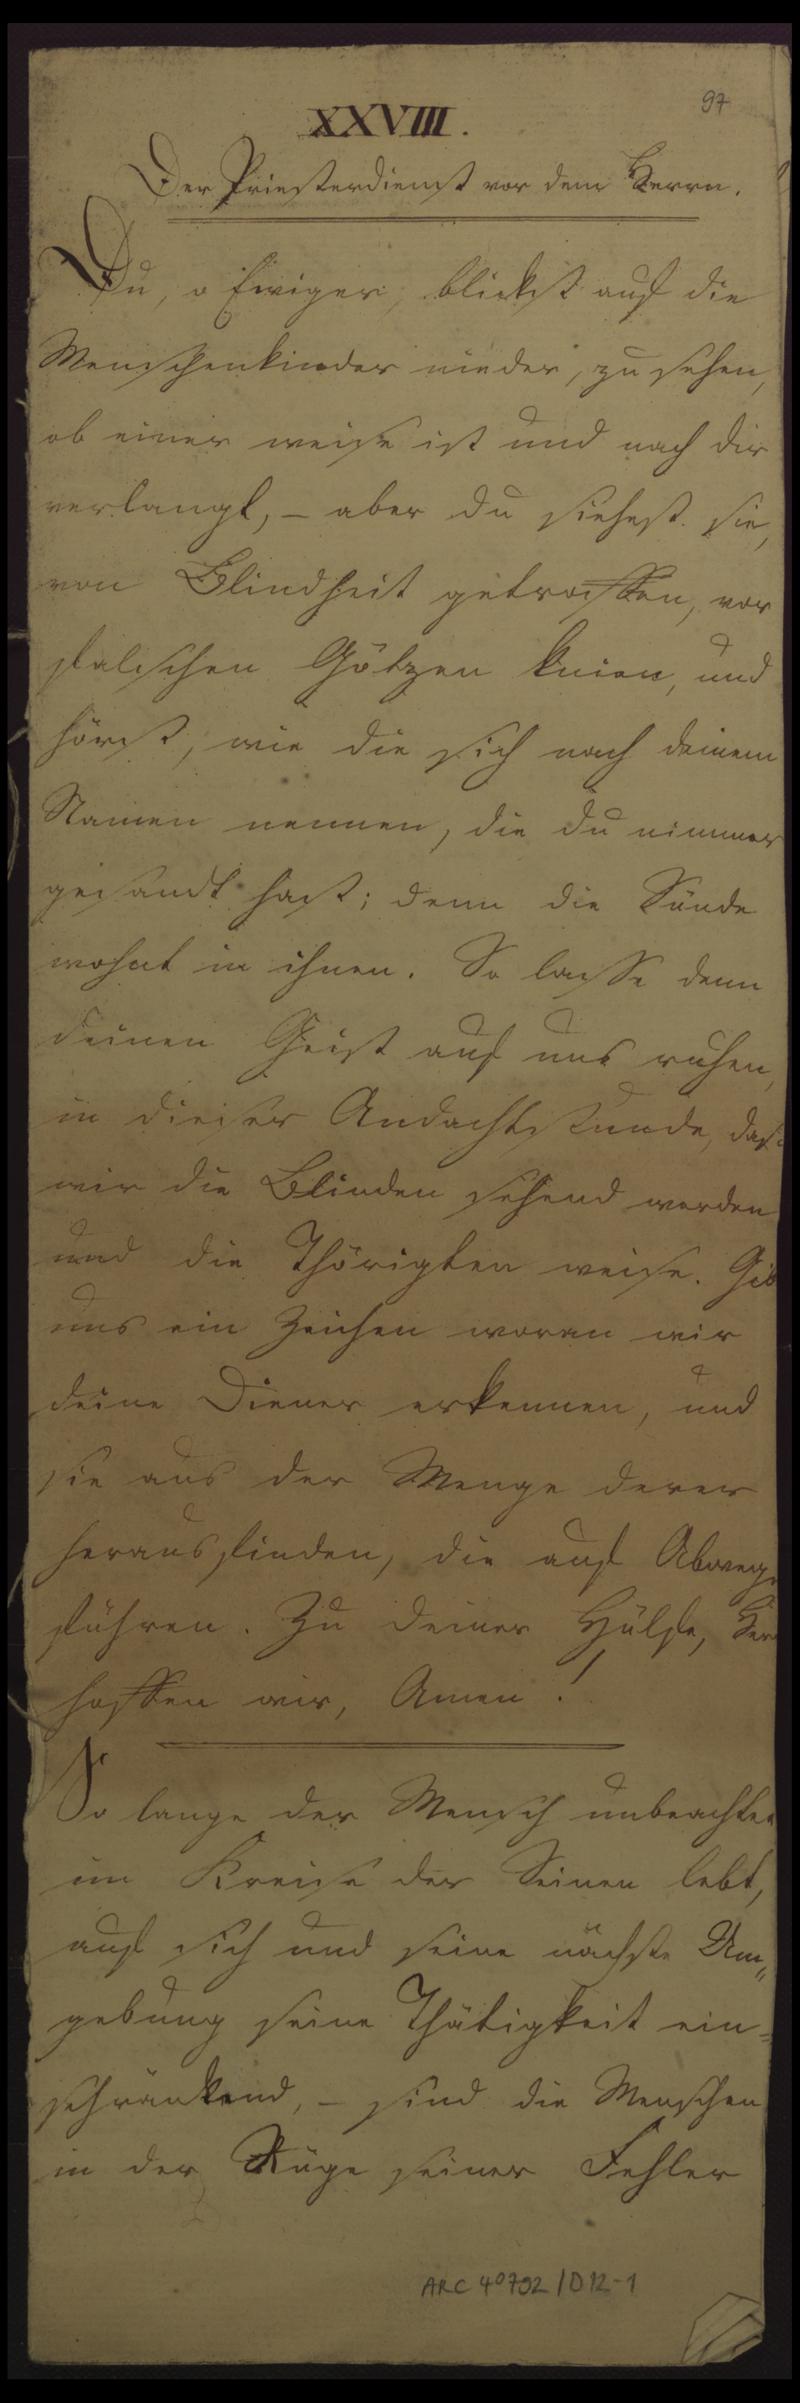 97
XXVIII.
Der Priesterdienst vor dem Herrn.
Du, o Ewiger, blickst auf die
Menschenkinder nieder, zu sehen,
ob einer weise ist und nach dir
verlangt, – aber du siehest sie,
von Blindheit getroffen, vor
falschen Götzen knien, und
hörst, wie die sich nach deinem
Namen nennen, die du nimmer
gesandt hast; denn die Sünde
wohnt in ihnen. So lasse denn
deinen Geist auf uns ruhen,
in dieser Andachtsstunde, daß
wir die Blinden sehend werden
und die Thörigten weise. Gib
uns ein Zeichen woran wir
deine Diener erkennen, und
sie aus der Menge derer
herausfinden, die auf Abwege
führen. Zu deiner Hülfe, Herr
hoffen wir, Amen!
So lange der Mensch unbeachtet
im Kreise der Seinen lebt,
auf sich und seine nächste Um„
gebung seine Thätigkeit ein=
schränkend, – sind die Menschen
in der Rüge seiner Fehler
ARC 4°792/D12-1